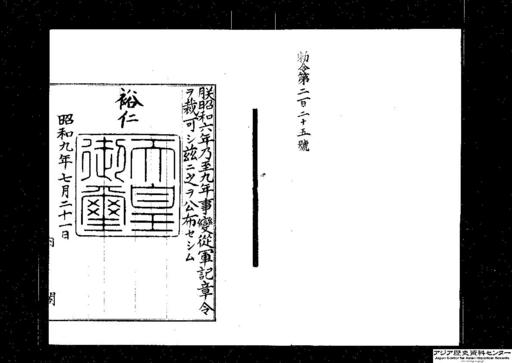 勅令第二百二十五號
朕昭和六年乃至九年事變從軍記章令
ヲ裁可シ茲ニ之ヲ公布セシム
裕仁
天皇
御璽
昭和九年七月二十一日
内閣
アジア歴史資料センター
Japan Center for Asian Historical Records